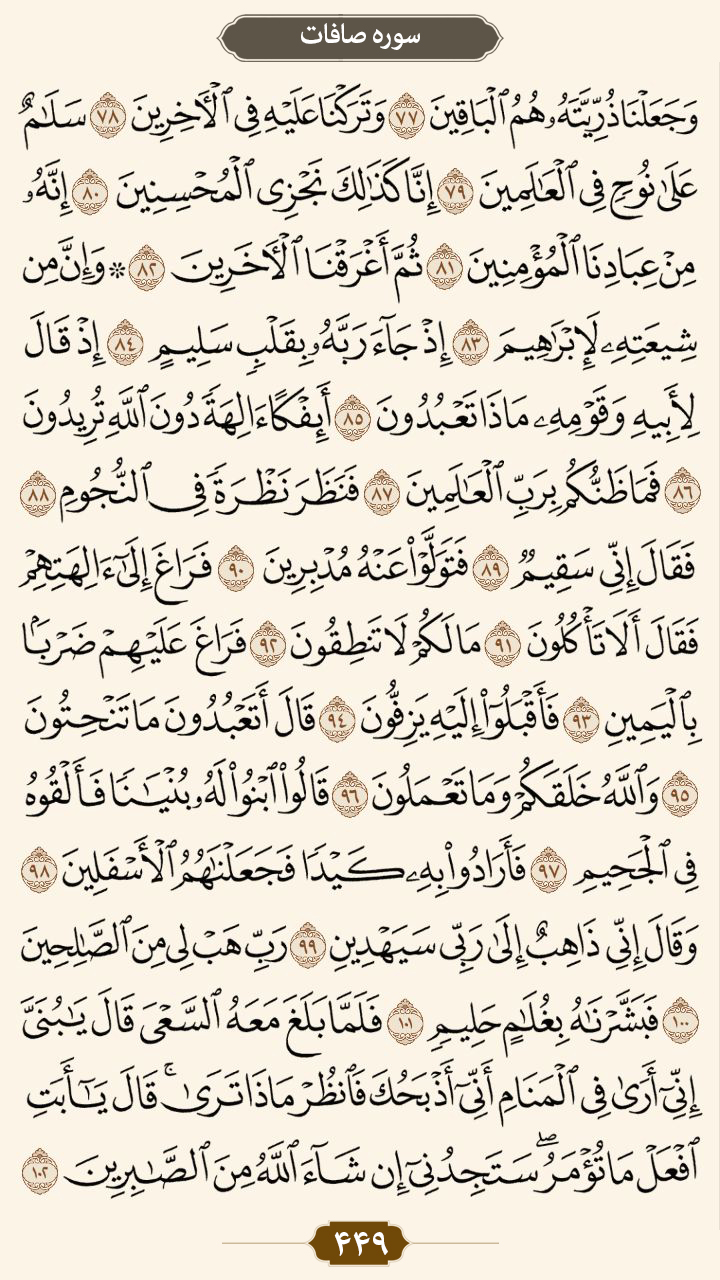 سوره صافات
وَجَعَلْنَا ذُرِّيَّتَهُۥ هُمُ ٱلْبَاقِينَ ٧٧ وَتَرَكْنَا عَلَيْهِ فِى ٱلْأَخِرِينَ ٧٨ سَلَٰمٌ
عَلَىٰ نُوحٍ فِى ٱلْعَٰلَمِينَ ٧٩ إِنَّا كَذَٰلِكَ نَجْزِى ٱلْمُحْسِنِينَ ٨٠ إِنَّهُۥ
مِنْ عِبَادِنَا ٱلْمُؤْمِنِينَ ٨١ ثُمَّ أَغْرَقْنَا ٱلْأَخَرِينَ ٨٢ ۞ وَإِنَّ مِن
شِيعَتِهِۦ لَإِبْرَٰهِيمَ ٨٣ إِذْ جَآءَ رَبَّهُۥ بِقَلْبٍ سَلِيمٍ ٨٤ إِذْ قَالَ
لِأَبِيهِ وَقَوْمِهِۦ مَاذَا تَعْبُدُونَ ٨٥ أَئِفْكًا ءَالِهَةً دُونَ ٱللَّهِ تُرِيدُونَ
٨٦ فَمَا ظَنُّكُم بِرَبِّ ٱلْعَٰلَمِينَ ٨٧ فَنَظَرَ نَظْرَةً فِى ٱلنُّجُومِ ٨٨
فَقَالَ إِنِّى سَقِيمٌ ٨٩ فَتَوَلَّوْا۟ عَنْهُ مُدْبِرِينَ ٩٠ فَرَاغَ إِلَىٰٓ ءَالِهَتِهِمْ
فَقَالَ أَلَا تَأْكُلُونَ ٩١ مَا لَكُمْ لَا تَنطِقُونَ ٩٢ فَرَاغَ عَلَيْهِمْ ضَرْبًۢا
بِٱلْيَمِينِ ٩٣ فَأَقْبَلُوٓا۟ إِلَيْهِ يَزِفُّونَ ٩٤ قَالَ أَتَعْبُدُونَ مَا تَنْحِتُونَ
٩٥ وَٱللَّهُ خَلَقَكُمْ وَمَا تَعْمَلُونَ ٩٦ قَالُوا۟ ٱبْنُوا۟ لَهُۥ بُنْيَٰنًا فَأَلْقُوهُ
فِى ٱلْجَحِيمِ ٩٧ فَأَرَادُوا۟ بِهِۦ كَيْدًا فَجَعَلْنَٰهُمُ ٱلْأَسْفَلِينَ ٩٨
وَقَالَ إِنِّى ذَاهِبٌ إِلَىٰ رَبِّى سَيَهْدِينِ ٩٩ رَبِّ هَبْ لِى مِنَ ٱلصَّٰلِحِينَ
١٠٠ فَبَشَّرْنَٰهُ بِغُلَٰمٍ حَلِيمٍ ١٠١ فَلَمَّا بَلَغَ مَعَهُ ٱلسَّعْىَ قَالَ يَٰبُنَىَّ
إِنِّىٓ أَرَىٰ فِى ٱلْمَنَامِ أَنِّىٓ أَذْبَحُكَ فَٱنظُرْ مَاذَا تَرَىٰ ۚ قَالَ يَٰٓأَبَتِ
ٱفْعَلْ مَا تُؤْمَرُ ۖ سَتَجِدُنِىٓ إِن شَآءَ ٱللَّهُ مِنَ ٱلصَّٰبِرِينَ ١٠٢
۴۴۹